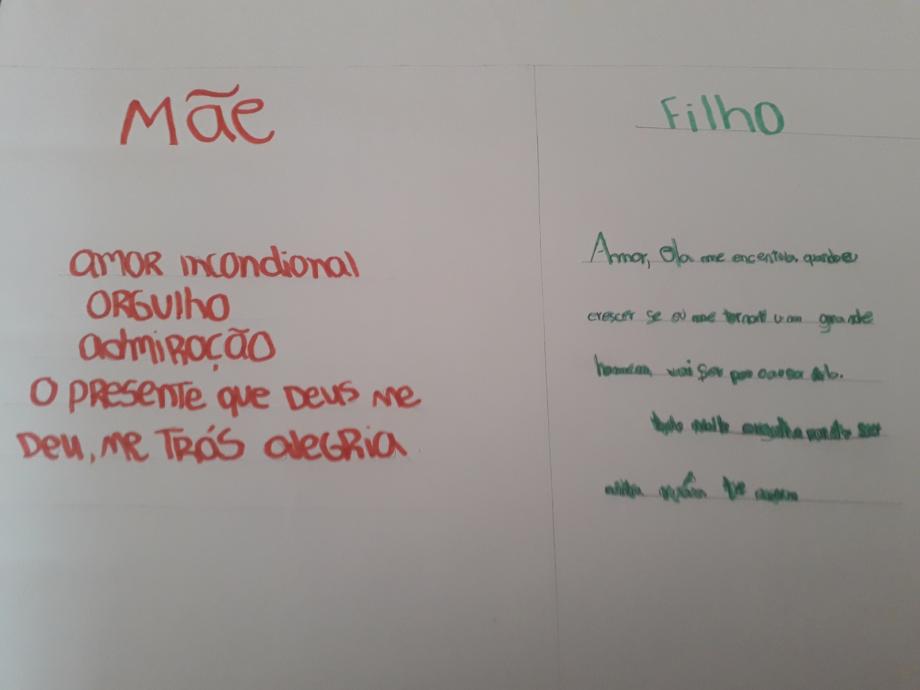 Mãe
AMOR INCONDIONAL
ORGULHO
ADMIRAÇÃO
O PRESENTE que DEUS ME
DEU, ME TRÁS ALEGRIA
Filho
Amor, Ela me encentiva quando eu
crescer se eu me tornar um grande
homem, vai ser por causa
orgulho ser